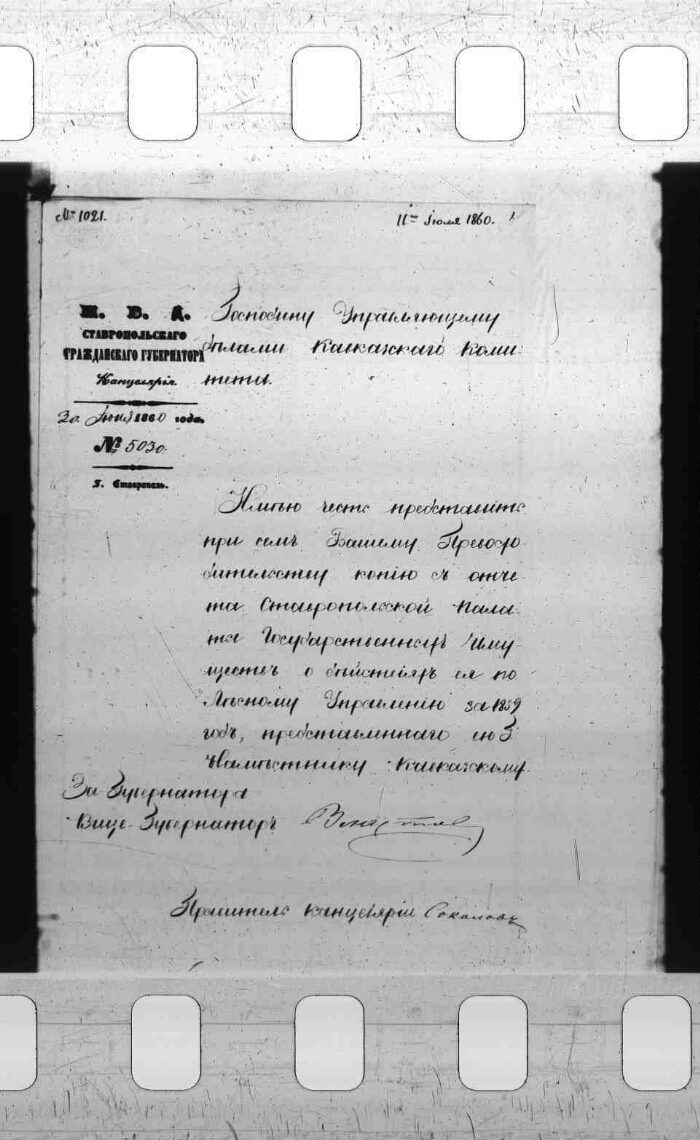 № 1021.
11го Июля 1860.
М. В. Д.
СТАВРОПОЛЬСКАГО
ГРАЖДАНСКАГО ГУБЕРНАТОРА
Канцелярія.
30 Іюня 1860 года.
№ 5030.
Г. Ставрополь.
Господину Управляющему
дѣлами Кавказскаго Коми-
тета.
Имѣю честь представить
при семъ Вашему Превосхо-
дительству копію съ отче-
та Ставропольской Пала-
ты Государственныхъ Иму-
ществъ о дѣйствіяхъ ея по
Лѣсному Управленію за 1859
годъ, представленнаго ею Г.
Намѣстнику Кавказскому.
За Губернатора
Вице-Губернаторъ
Правитель канцеляріи Соколовъ